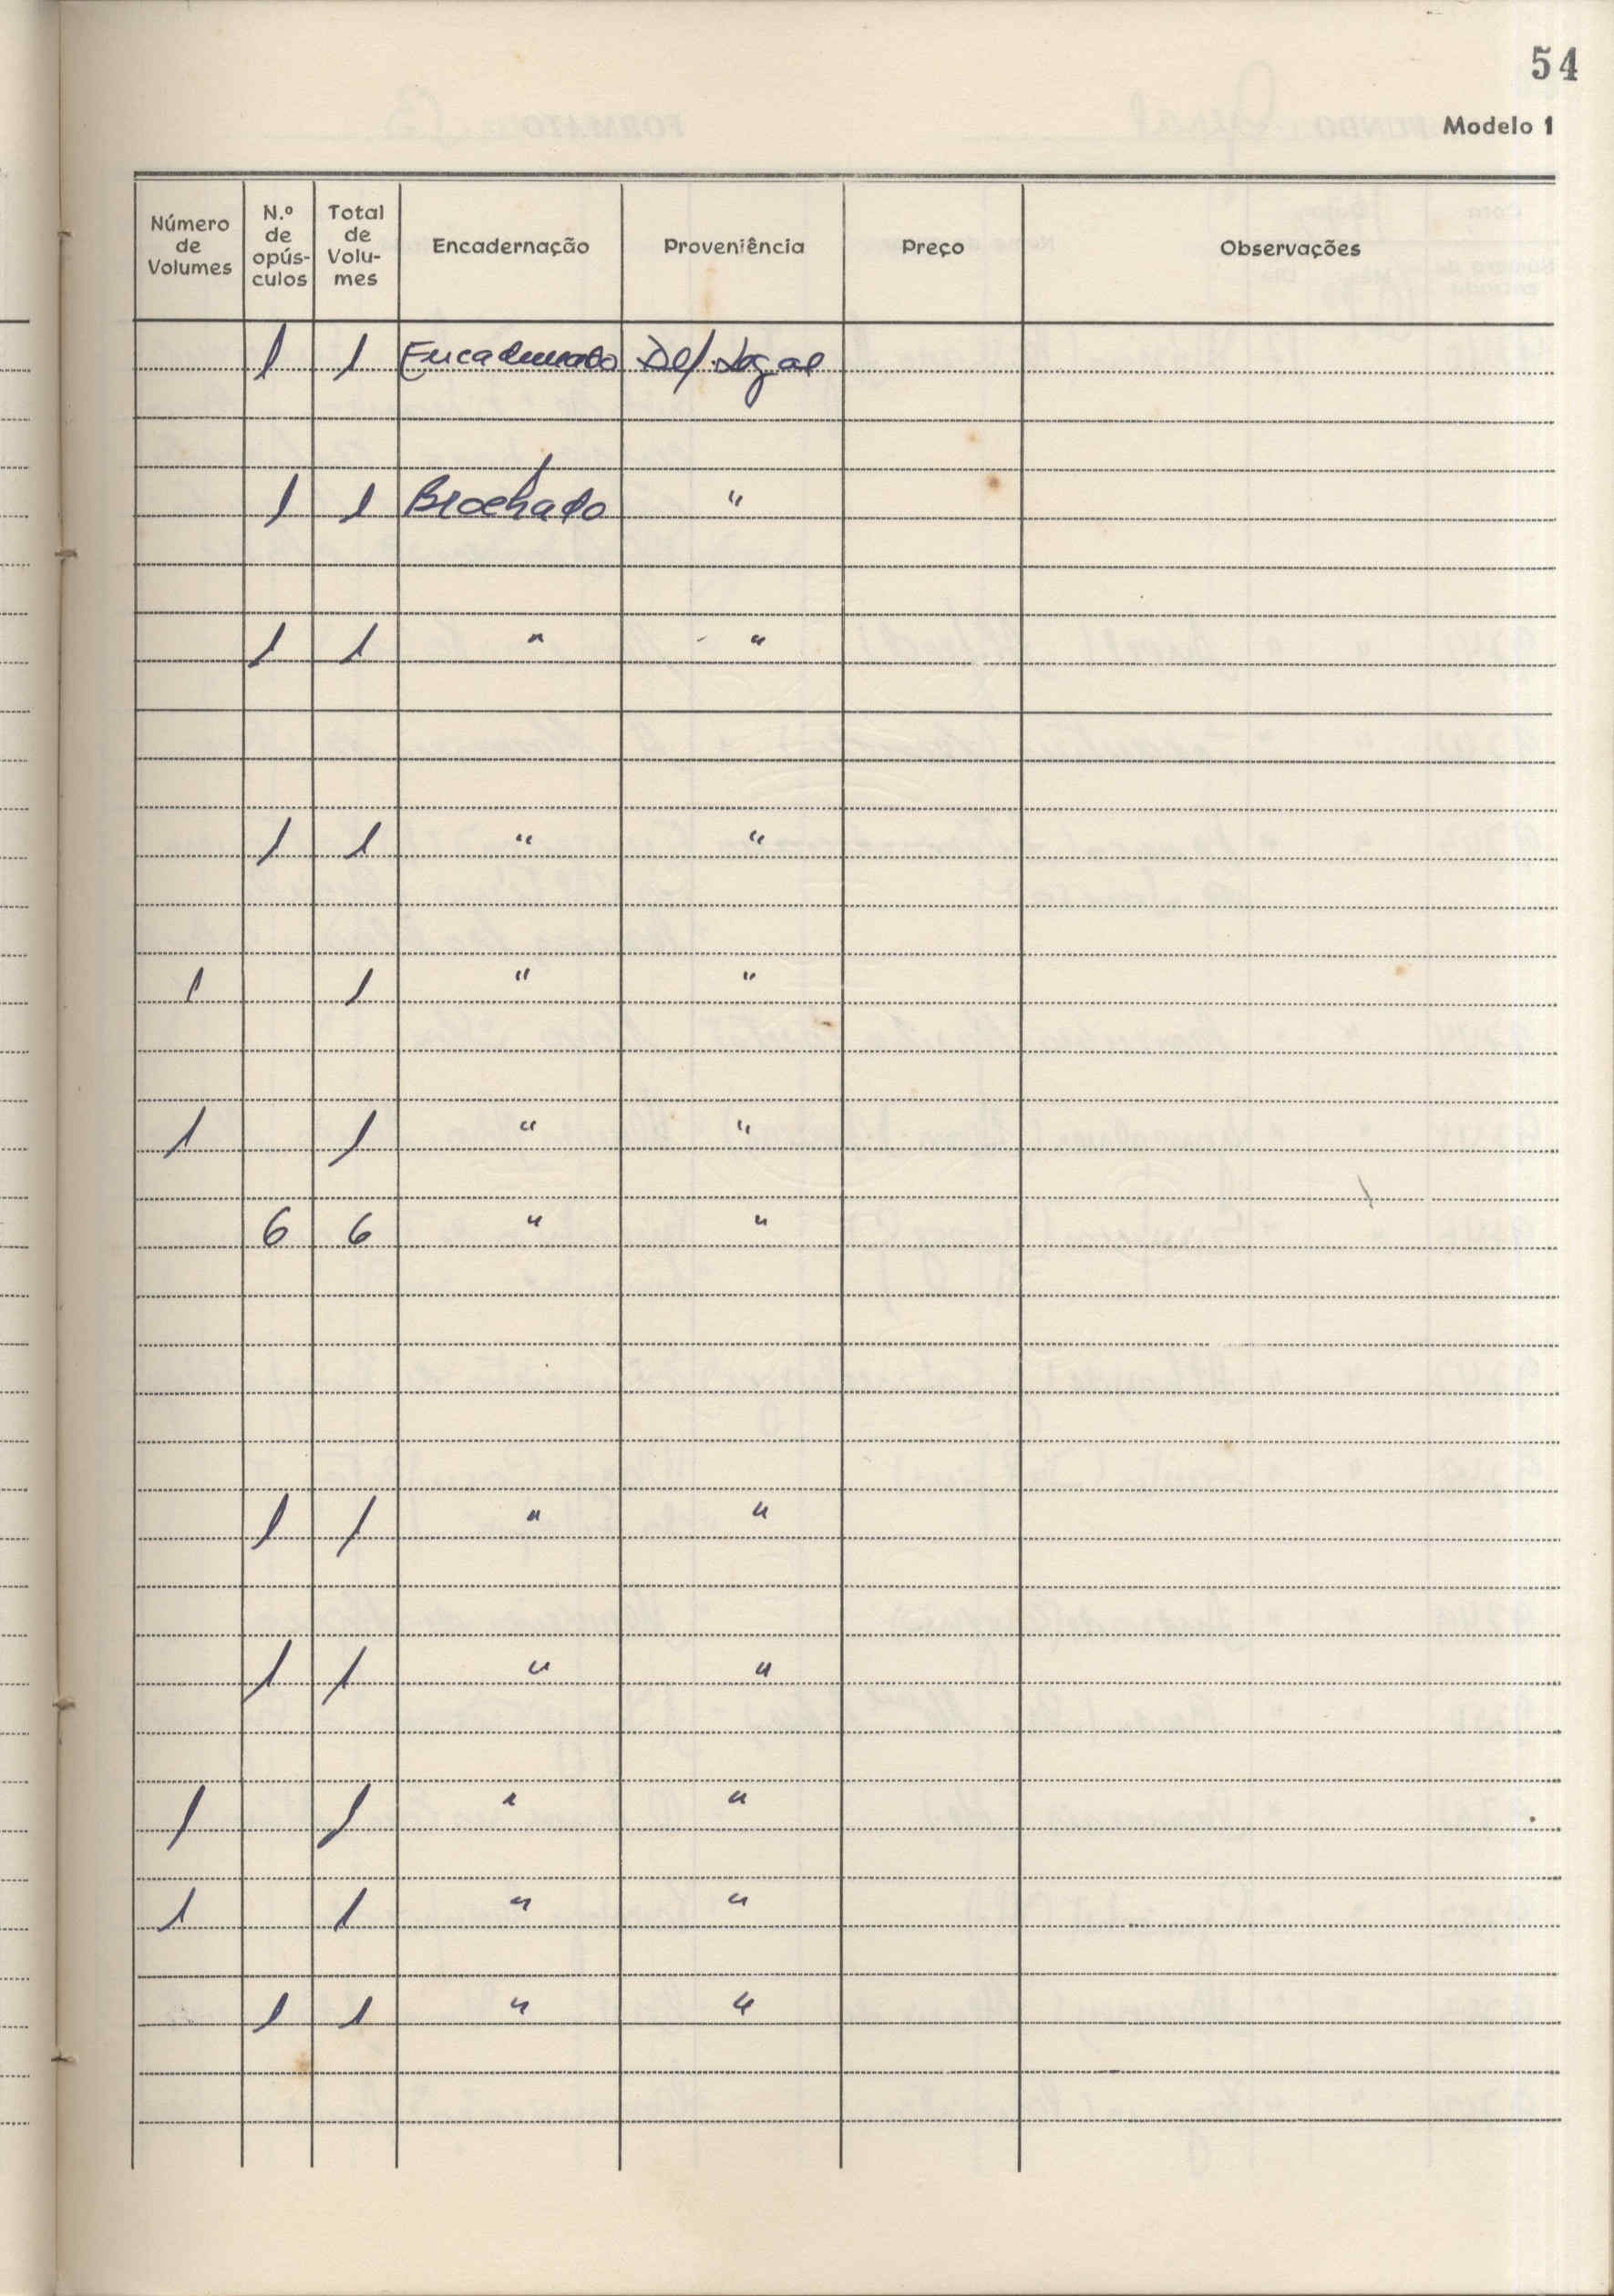 54
Modelo 1
Número de Volumes | N.º de opús-culos | Total de Volu-mes | Encadernação | Proveniência | Preço | Observações
1 1 Encadernado Def. Legal
1 1 Brochado "
1 1 " "
1 1 " "
1 1 " "
1 1 " "
6 6 " "
1 1 " "
1 1 " "
1 1 " "
1 1 " "
1 1 " "